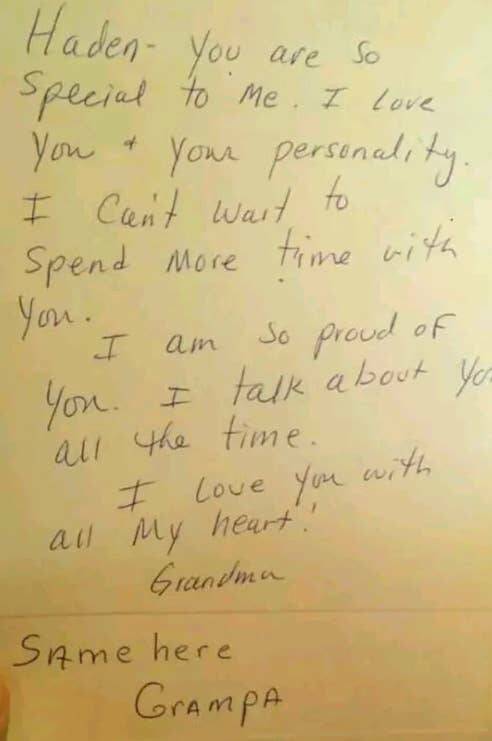 Haden- You are so
Special to Me. I love
You + Your personality.
I Can't wait to
Spend More time with
You.
I am so proud of
You. I talk about Yo
all the time.
I Love You with
all My heart!
Grandma
SAme here
GrAmpA